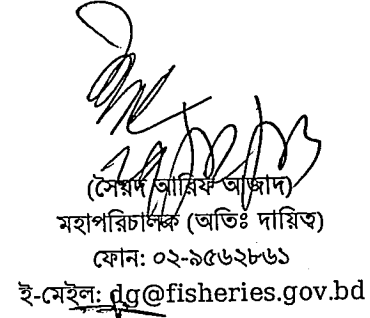 (সৈয়দ আরিফ আজাদ)
মহাপরিচালক (অতিঃ দায়িত্ব)
ফোন: ০২-৯৫৬২৮৬১
ই-মেইল: dg@fisheries.gov.bd